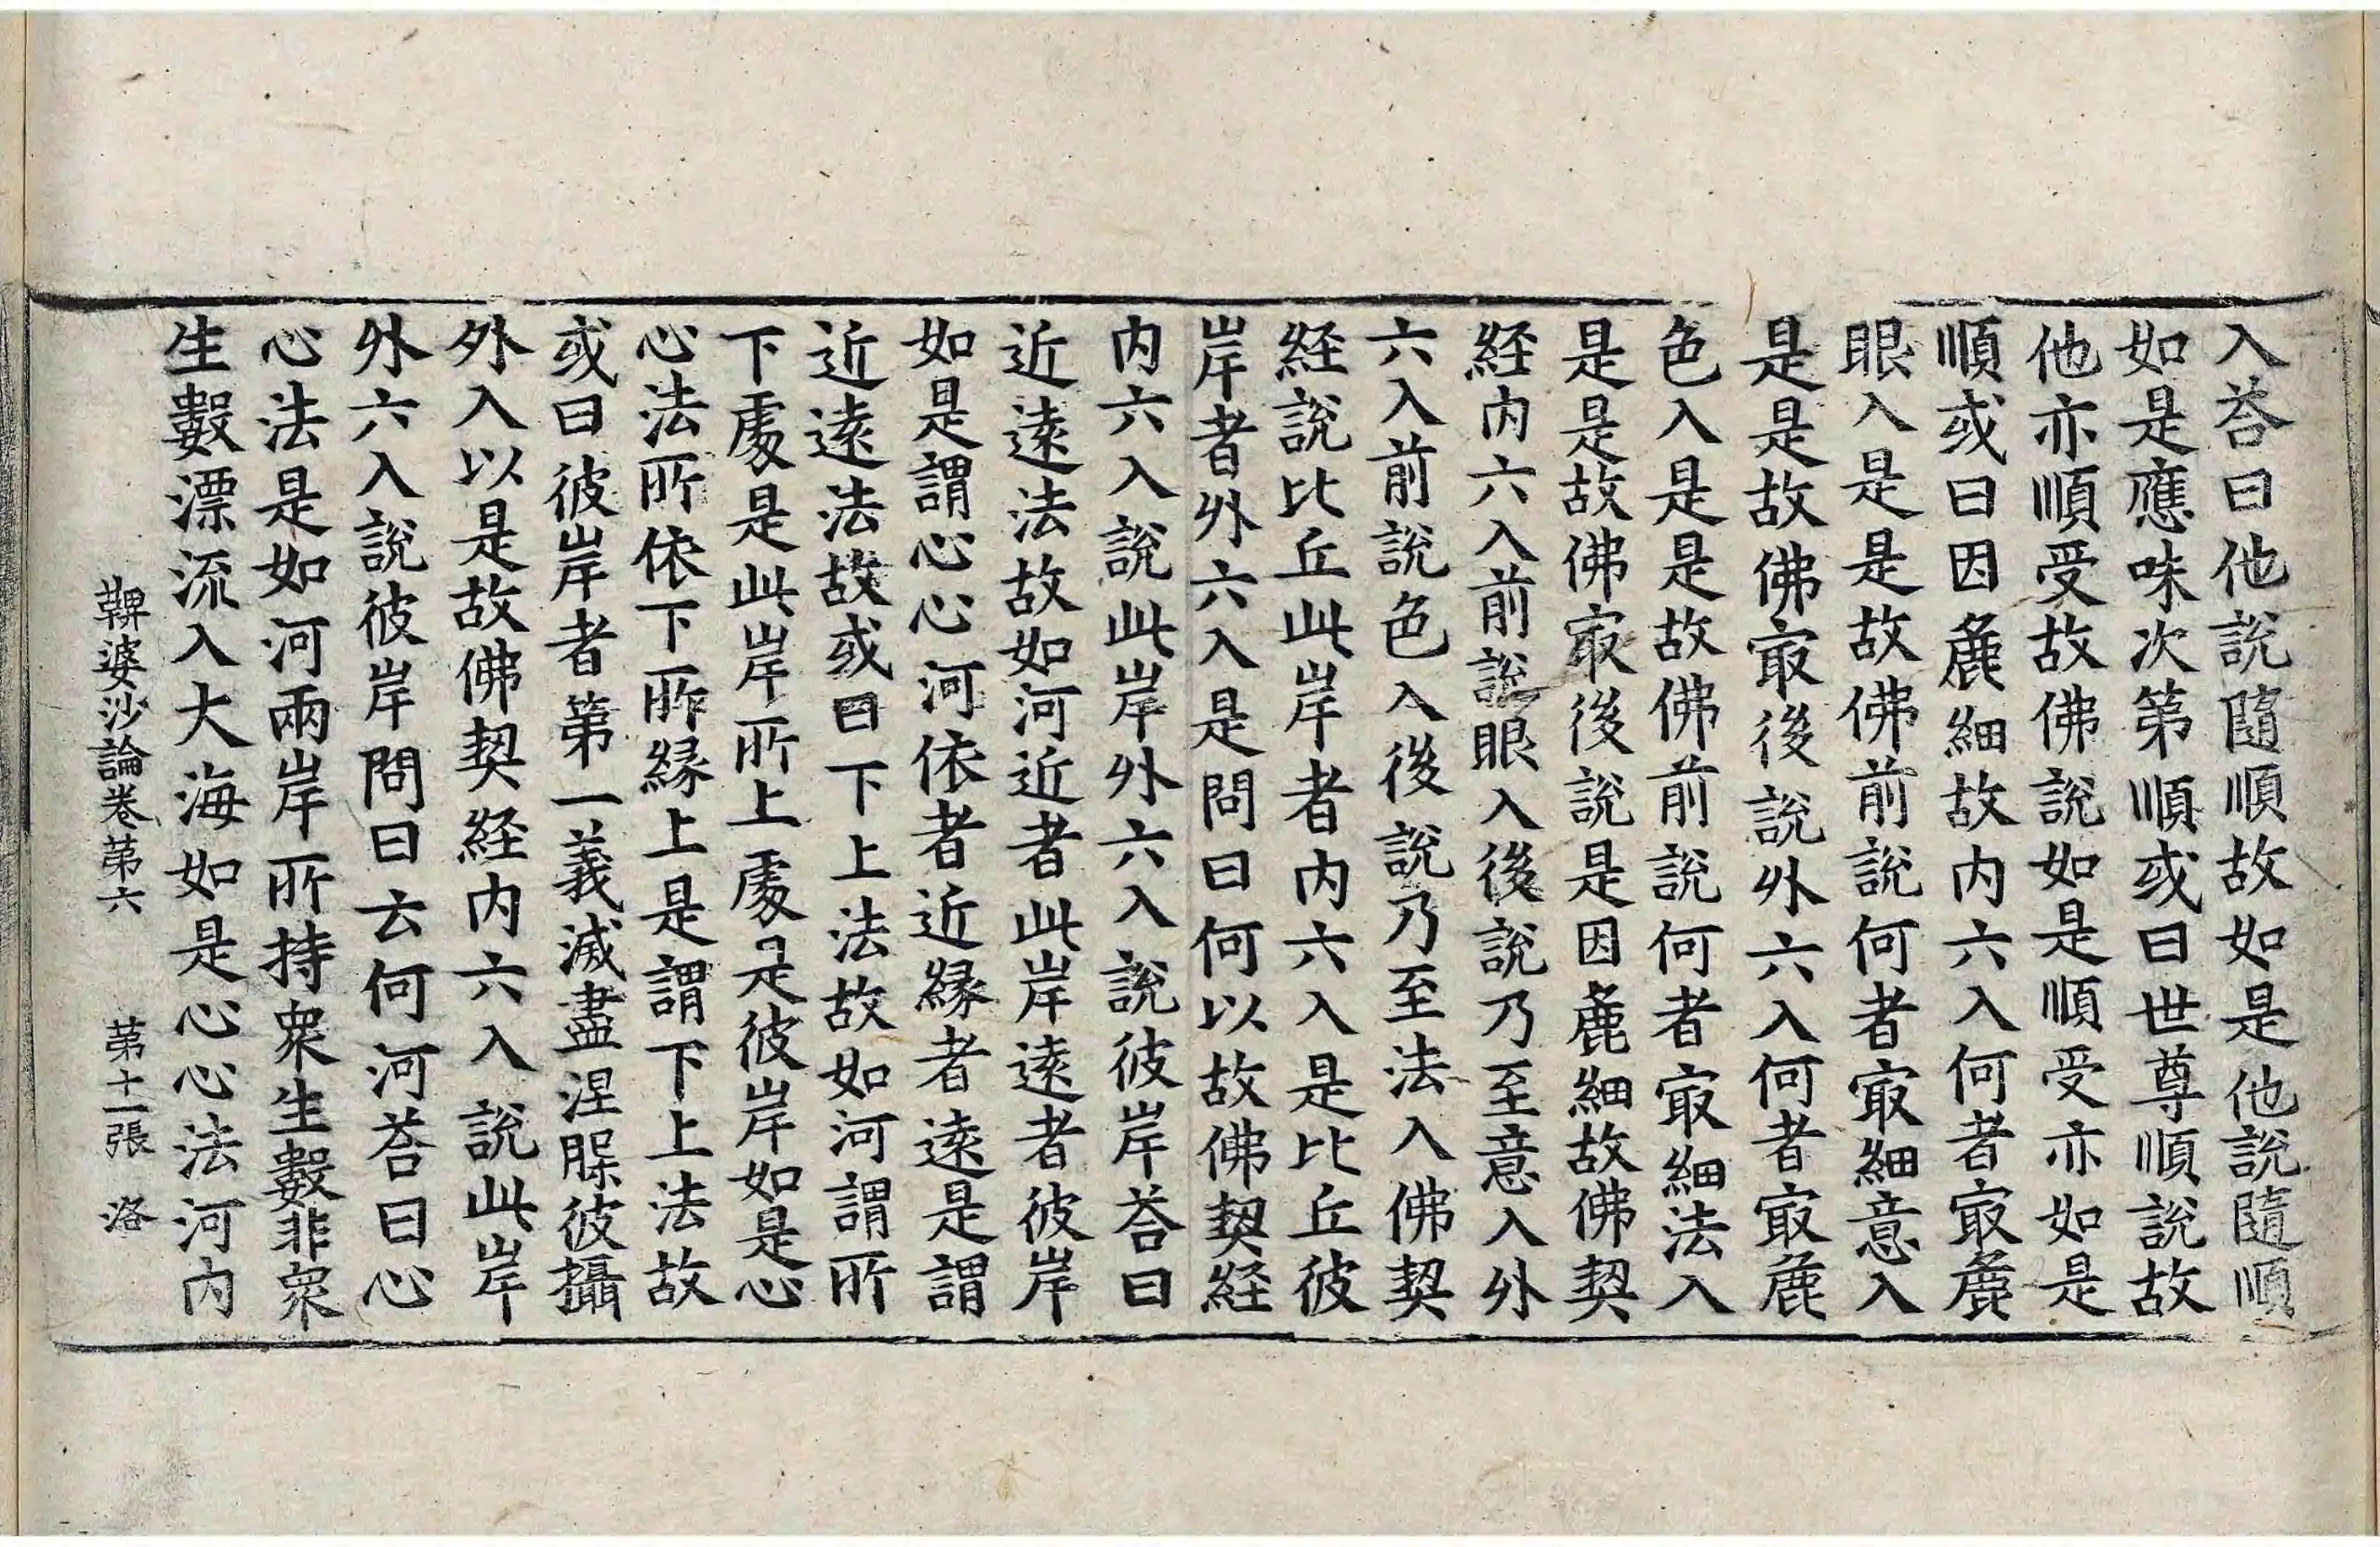 入荅曰他說隨順故如是他說隨順
如是應味次第順或曰世尊順說故
他亦順受故佛說如是順受亦如是
順或曰因麁細故内六入何者㝡麁
眼入是是故佛前說何者㝡細意入
是是故佛㝡後說外六入何者㝡麁
色入是是故佛前說何者㝡細法入
是是故佛㝡後說是因麁細故佛契
経内六入前說眼入後說乃至意入外
六入前說色入後說乃至法入佛契
経說比丘此岸者内六入是比丘彼
岸者外六入是問曰何以故佛契経
内六入說此岸外六入說彼岸荅曰
近逺法故如河近者此岸逺者彼岸
如是謂心心河依者近縁者逺是謂
近逺法故或曰下上法故如河謂所
下處是此岸所上處是彼岸如是心
心法所依下所縁上是謂下上法故
或曰彼岸者第一義滅盡涅槃彼攝
外入以是故佛契経内六入說此岸
外六入說彼岸問曰云何河荅曰心
心法是如河兩岸所持衆生數非衆
生數漂流入大海如是心心法河内
鞞婆沙論卷苐六 苐十一張 洛